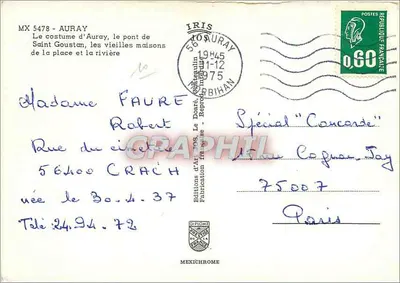 MX 5478 - AURAY
Le costume d'Auray, le pont de
Saint Goustan, les vieilles maisons
de la place et la rivière
IRIS
56 AURAY
19H45
31-12
1975
MORBIHAN
POSTES
0,60
REPUBLIQUE FRANÇAISE
Madame FAURE
Robert
Rue du
56400 CRACH
née le 30.4.37
Télé 24.94.72
Editions d'Art Le Doaré, Châteaulin
Fabrication française - Reproduction
Spécial "Concorde"
rue Cognacq-Jay
75007
Paris
CRAPHIL
MEXICHROME